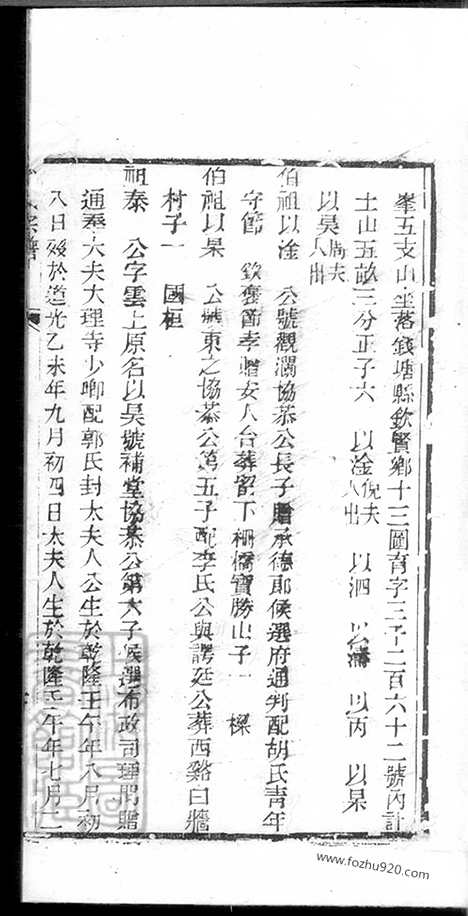 峯五支山坐落錢塘縣欽賢鄉十三圖育字三千二百六十二號內計
土山五畝三分正子六　以淦倪夫人出　以泗　以濤　以丙　以杲
以昊周夫人出
伯祖以淦　公號觀瀾協恭公長子贈承德郎候選府通判配胡氏青年
守節　欽褒節孝贈安人合葬留下柵橋寶勝山子一　樑
伯祖以杲　公號東之協恭公第五子配李氏公與諤廷公葬西谿白牆
村子一　國柜
祖泰　公字雲上原名以昊號補堂協恭公第六子候選布政司理問贈
通奉大夫大理寺少卿配郭氏封太夫人公生於乾隆壬午年八月初
八日歿於道光乙未年九月初四日太夫人生於乾隆壬午年七月二
宗譜
www.fozhu920.com